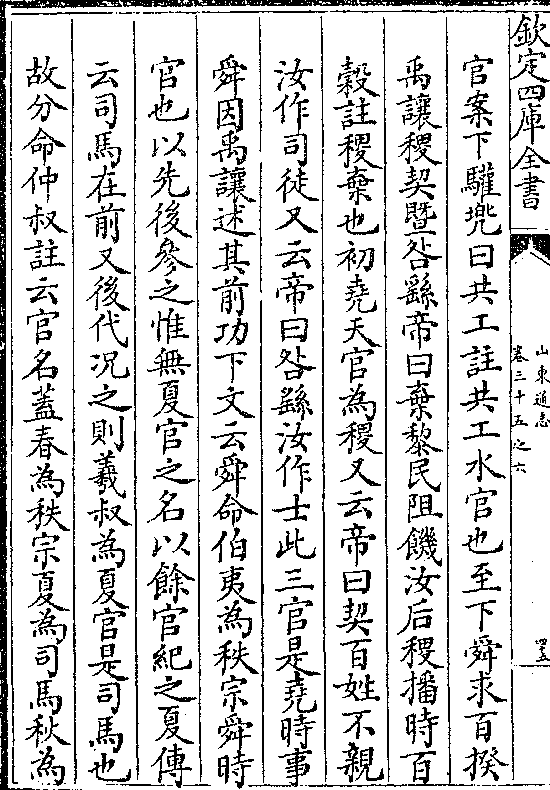 欽定四庫全書
山東通志
卷三十五之六
四五
官案下驩兠曰共工註共工水官也至下舜求百揆
禹讓稷契暨咎繇帝曰棄黎民阻饑汝后稷播時百
穀註稷棄也初堯天官為稷又云帝曰契百姓不親
汝作司徒又云帝曰咎繇汝作士此三官是堯時事
舜因禹讓述其前功下文云舜命伯夷為秩宗舜時
官也以先後參之惟無夏官之名以餘官紀之夏傳
云司馬在前又後代况之則羲叔為夏官是司馬也
故分命仲叔註云官名蓋春為秩宗夏為司馬秋為